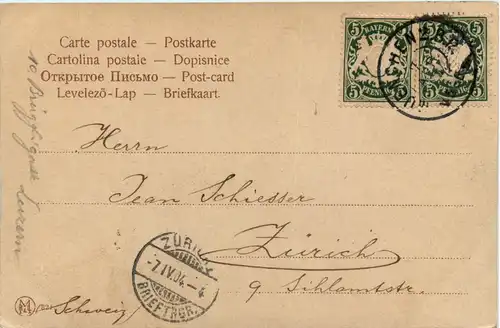 Carte postale — Postkarte
Cartolina postale — Dopisnice
Открытое Письмо — Post-card
Levelező-Lap — Briefkaart.
BAYERN
5 5
PFENNIG
5 5
PFENNIG
Herrn
Jean Schiesser
Zürich
9 Sihlamtstr.
Schweiz
ZÜRICH
-7.IV.04.-4
BRIEFTRGR.
M
10
Luzern